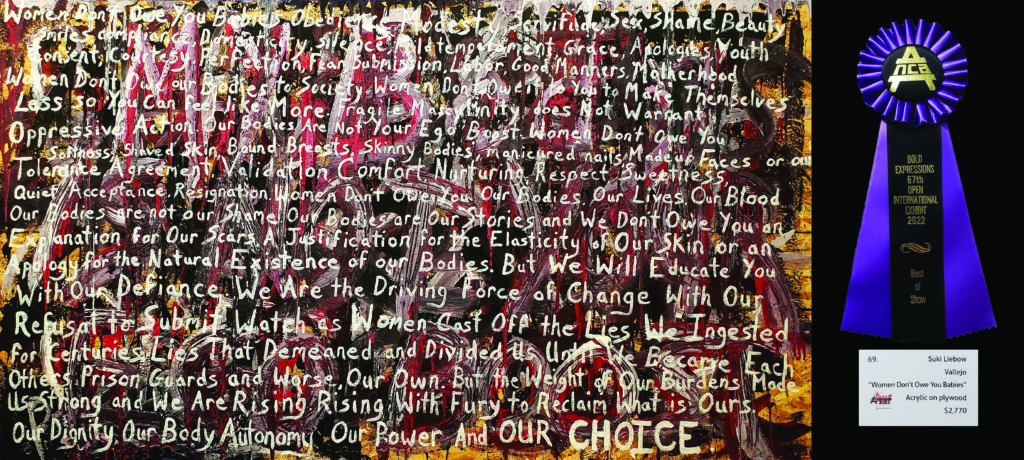 Women Don't Owe You Babies Obedience, Modesty, Servitude, Sex, Shame, Beauty
Smiles compliance, Domesticity, Silence, Mild temperament Grace, Apologies, Youth
Consent, Courtesy Perfection, Fear, Submission, Labor Good Manners, Motherhood
Women Dont Owe Our Bodies to Society. Women Don't Owe it to You to Make Themselves
Less So You Can Feel Like More. Fragile Masculinity does Not Warrant
Oppressive Action. Our Bodies Are Not Your Ego Boost. Women Don't Owe You
Softness, Shaved Skin, Bound Breasts, Skinny Bodies, manicured nails, Made up Faces or our
Tolerance Agreement, Validation Comfort Nurturing Respect Sweetness
Quiet Acceptance, Resignation. Women Dont Owe You Our Bodies. Our Lives. Our Blood
Our Bodies are not our Shame. Our Bodies are Our Stories and We Dont Owe You an
Explanation for Our Scars, A Justification for the Elasticity of Our Skin or an
Apology for the Natural Existence of our Bodies. But We Will Educate You
With Our Defiance. We Are the Driving Force of Change With Our
Refusal to Submit. Watch as Women Cast Off the Lies We Ingested
for Centuries, Lies That Demeaned and Divided Us Until We Became Each
Others Prison Guards and Worse, Our Own. But the Weight of Our Burdens Made
Us Strong and We Are Rising, Rising With Fury to Reclaim What is Ours.
Our Dignity, Our Body Autonomy, Our Power And OUR CHOICE.
NCA
BOLD
EXPRESSIONS
67th
OPEN
INTERNATIONAL
EXHIBIT
2022
Best
of
Show
69. Suki Liebow
Vallejo
"Women Don't Owe You Babies"
Acrylic on plywood
$2,770